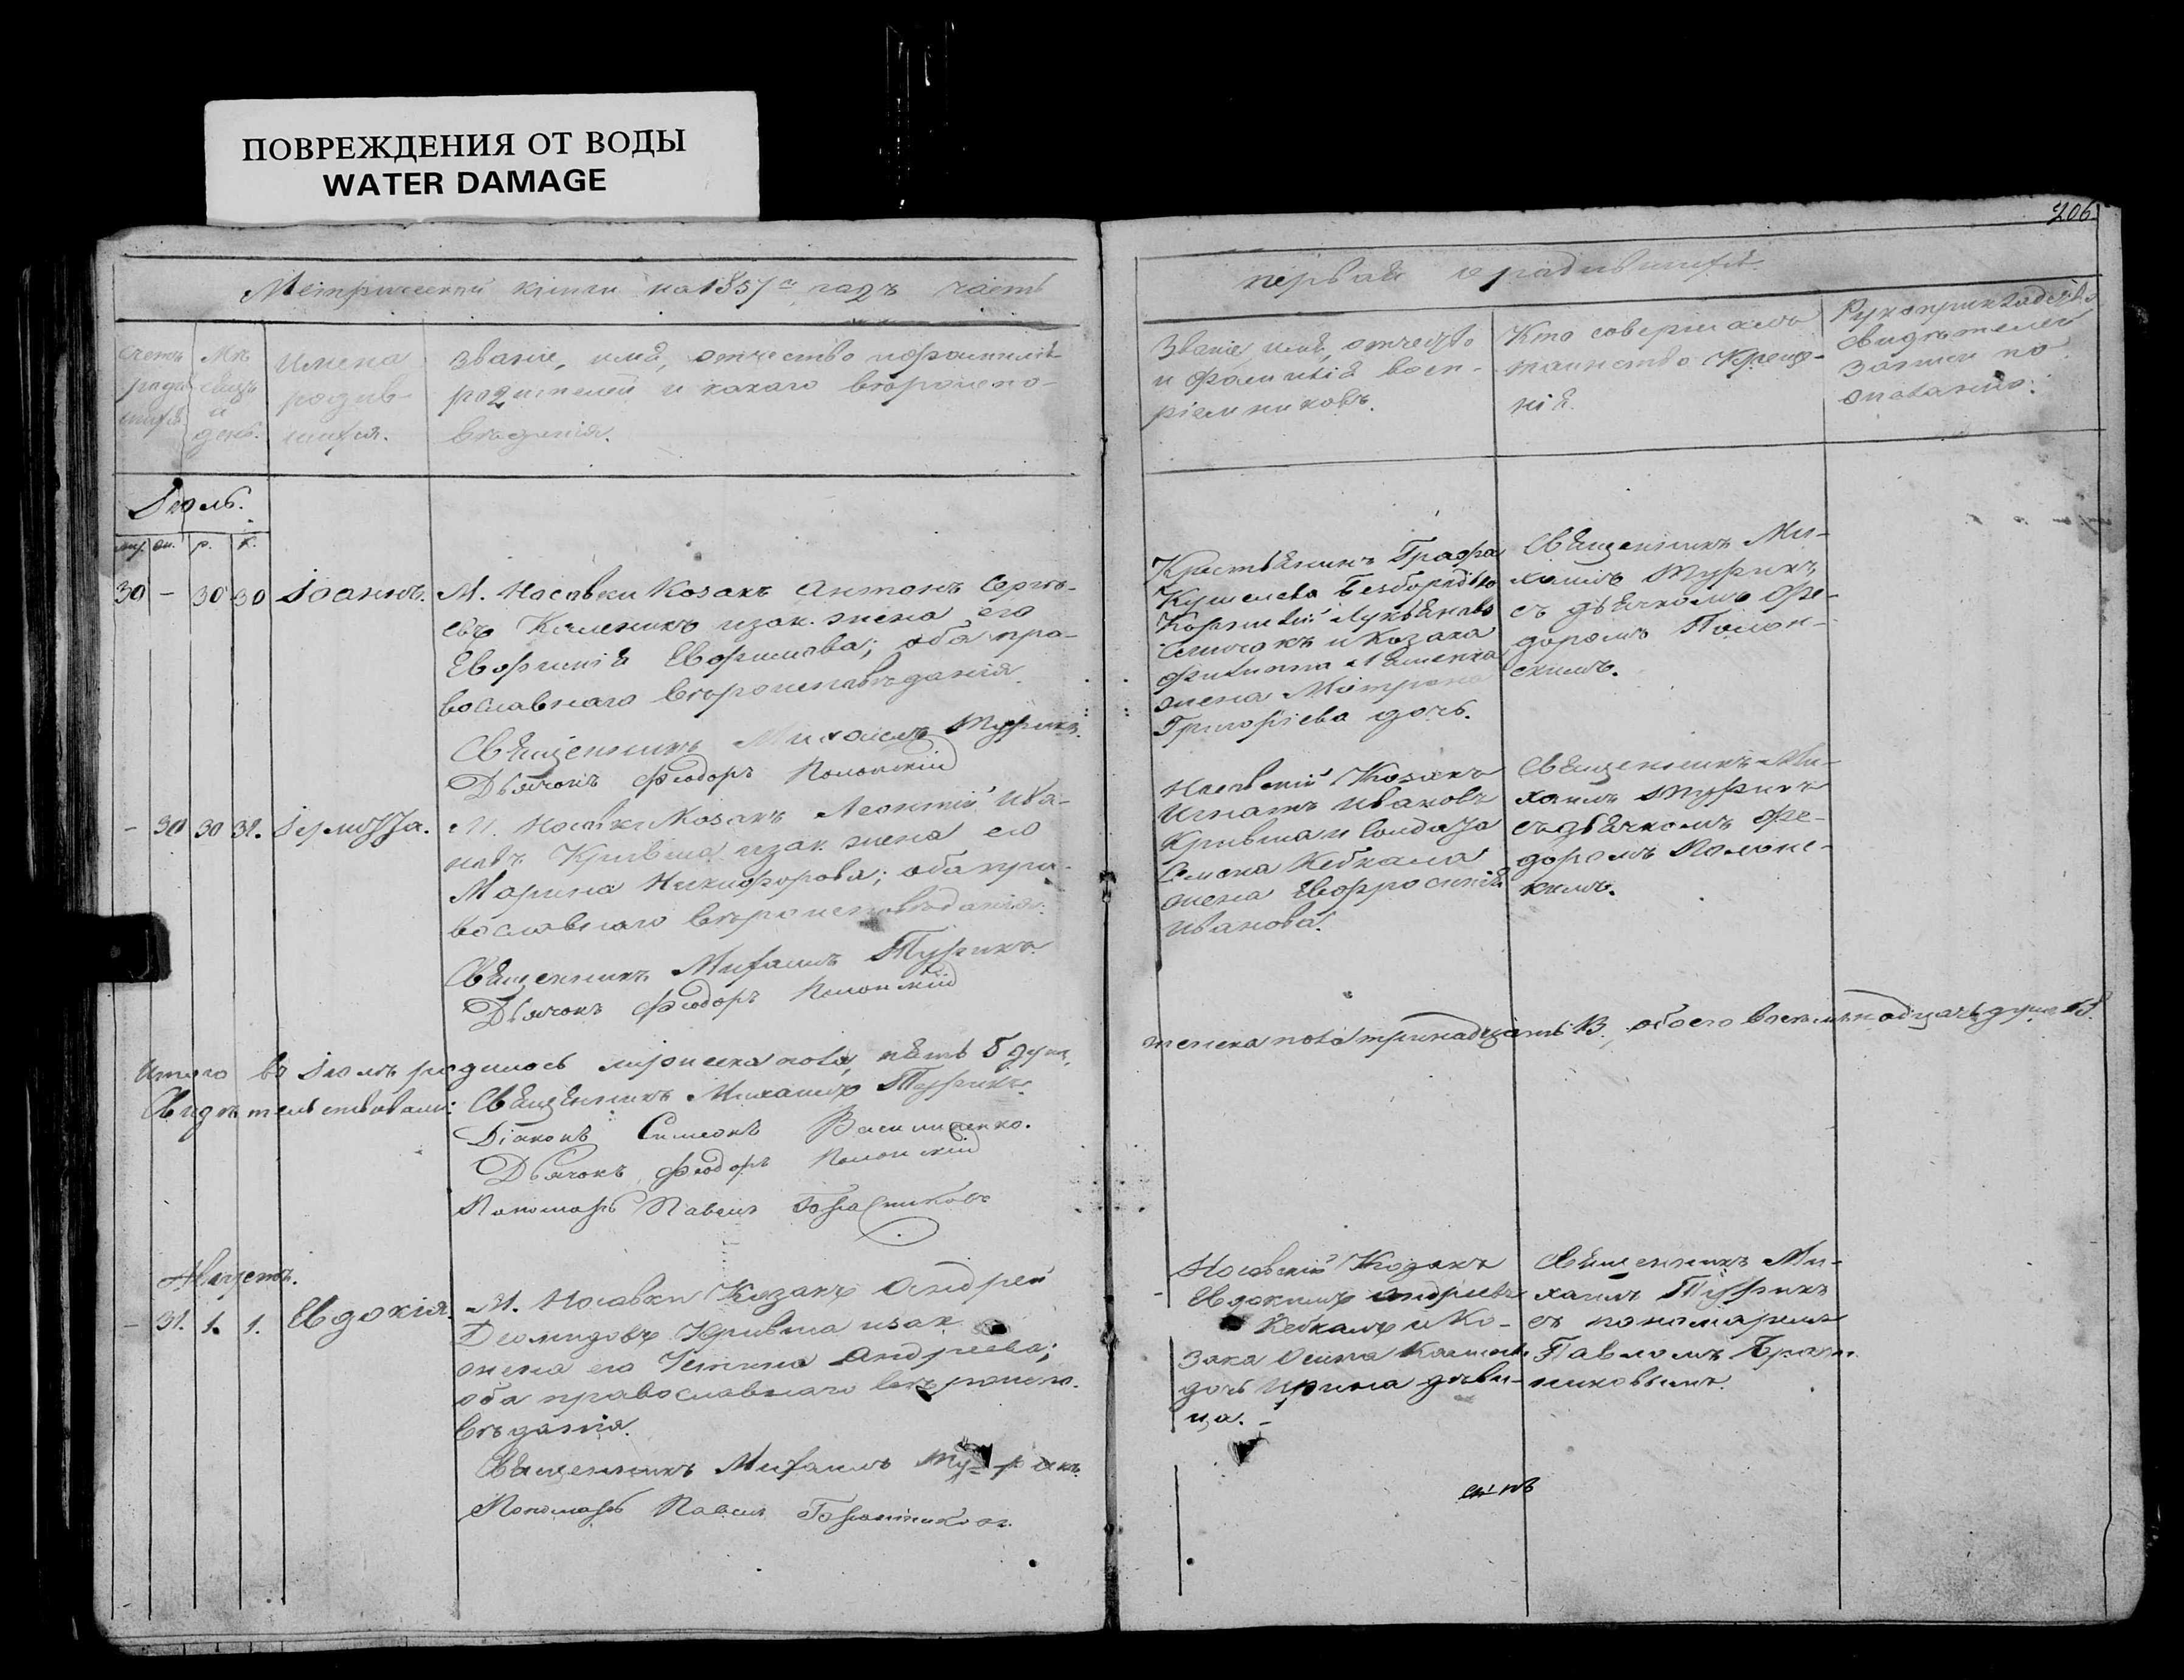 ПОВРЕЖДЕНИЯ ОТ ВОДЫ
WATER DAMAGE
206.
Метрической книги на 1857й годъ часть
первая о родившихся.
Счетъ родившихся
Мѣсяцъ и день.
Имена
родив-
шихся.
Званіе, имя, отчество и фамилія
родителей и какого вѣроиспо-
вѣданія.
Званіе, имя, отчество
и фамилія восп-
ріемниковъ.
Кто совершалъ
таинство Креще-
нія.
Рукоприкладство
свидѣтелей
записи по
желанію.
Іюль.
р. к.
30 - 30 30 Іоаннъ.
М. Носовки Козакъ Антонъ Сергѣ-
евъ Каленикъ и зак. жена его
Евфимія Евфимова; оба пра-
вославнаго вѣроисповѣданія.
Священникъ Михаилъ Туринъ.
Дьячокъ Феодоръ Полонскій
Крестьянинъ Графа
Кушелева Безбородько
Корнилій Лукьяновъ
и Козака
Филиппа
жена Матрона
Григоріева дочь.
Священникъ Ми-
хаилъ Туринъ
съ дьячкомъ Фе-
доромъ Полон-
скимъ.
- 30 30 31.
М. Носовки Козакъ Леонтій Ива-
новъ Кривша и зак. жена его
Марина Никифорова; оба пра-
вославнаго вѣроисповѣданія.
Священникъ Михаилъ Туринъ.
Дьячокъ Феодоръ Полонскій
Носовскій Козакъ
Игнатъ Ивановъ
Кривша и Солдата
Семена Кебкала
жена Евфросинія
Иванова.
Священникъ Ми-
хаилъ Туринъ
съ дьячкомъ Фе-
доромъ Полонс-
кимъ.
Итого въ Іюлѣ родилось мужеска пола пять 5 душъ,
женска пола тринадцать 13, обоего восемьнадцать душъ 18.
Свидѣтельствовали: Священникъ Михаилъ Туринъ
Діаконъ Симеонъ Василенко.
Дьячокъ Феодоръ Полонскій
Пономарь Павелъ
Августъ.
- 31. 1. 1. Евдокія.
М. Носовки Козакъ Андрей
Деомидовъ Кривша и зак
жена его Устина Андреева;
оба православнаго вѣроиспо-
вѣданія.
Священникъ Михаилъ Ту-ринъ.
Пономарь Павелъ
Носовскій Козакъ
Евдокимъ Андреевъ
Кебкалъ и Ко-
зака Осипа
дочь Ирина дѣви-
ца.
Священникъ Ми-
хаилъ Туринъ
съ пономаремъ
Павломъ
никовымъ.